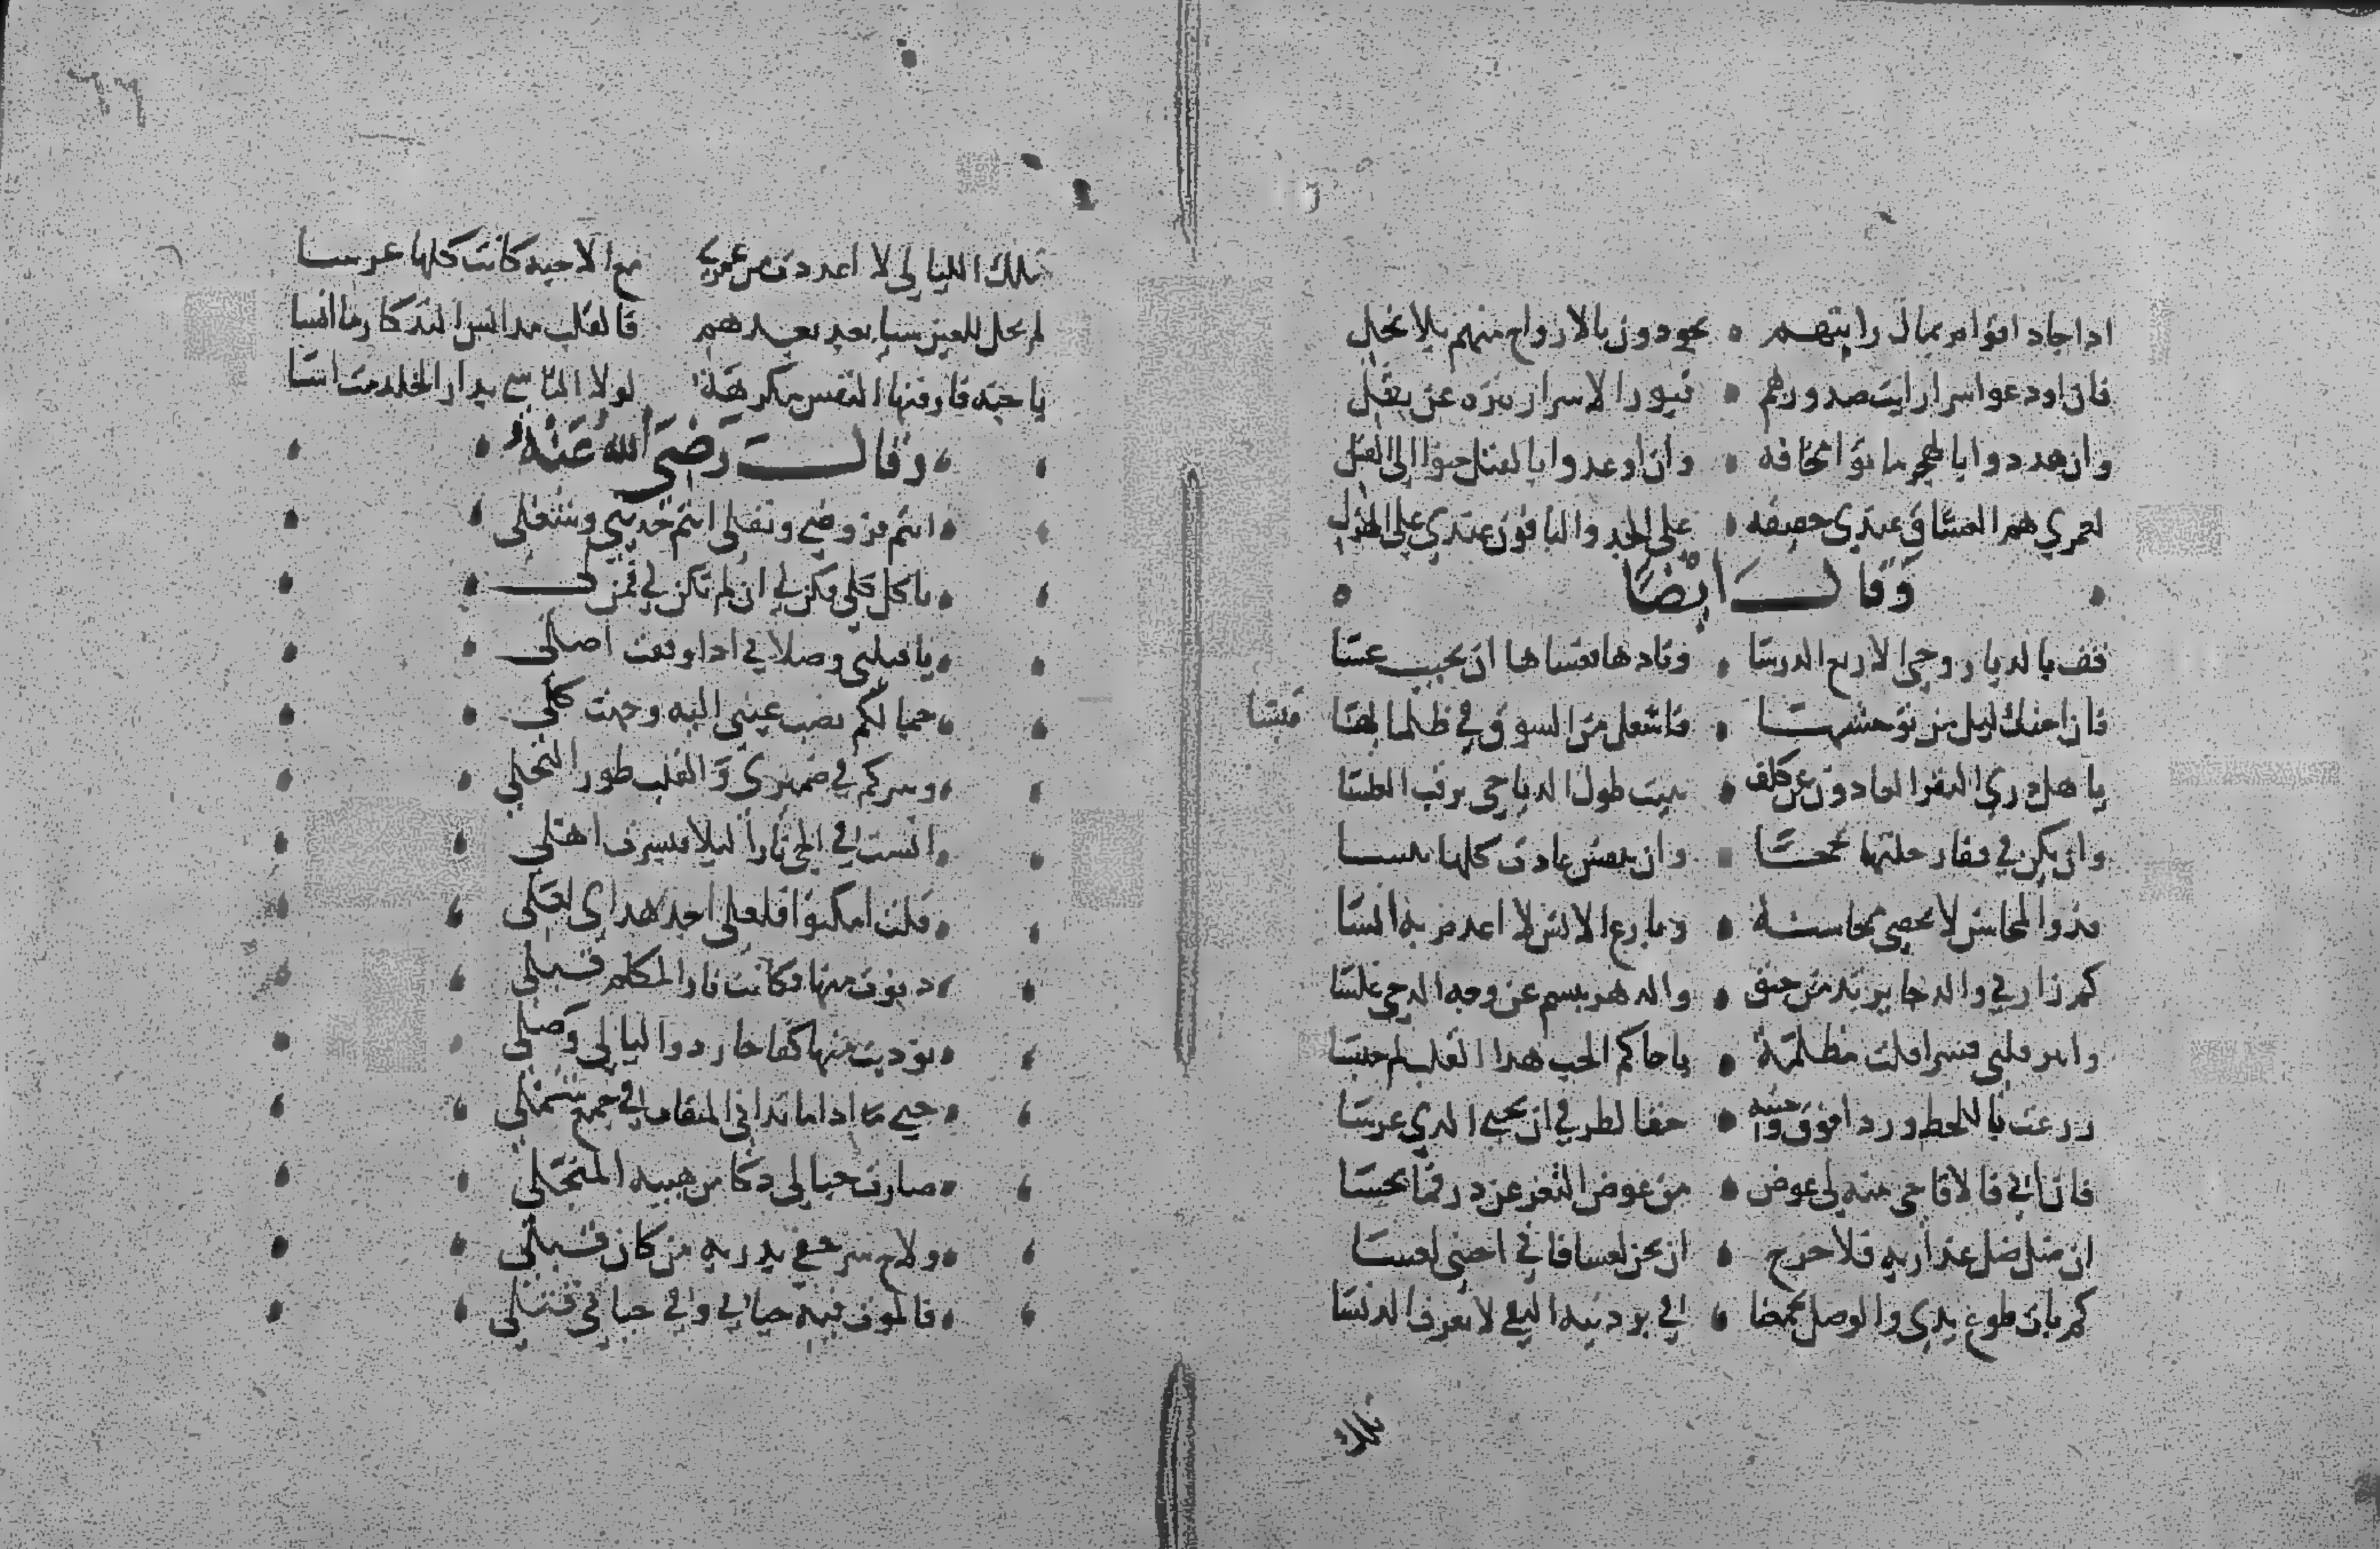 اذا جاد اقوام بمال رايتهم • يجودون بالارواح منهم بلا بخل
فان اودعوا سرا رايت صدورهم • قبورا لاسرار تنزه عن نقل
وان هددوا بالهجر ماتوا مخافة • وان اوعدوا بالقتل حنوا الى القتل
لعمري هم العشاق عندي حقيقة • على الجد والباقون عندي على الهزل
وقال ايضا
قف بالديار وحي الاربع الدرسا • ونادها فعساها ان تجيب عسا
فان اجنك ليل من توحشها • فاشعل من الشوق في ظلمائها قبسا
يا هل درى النفر الغادون عن كلف • يبيت طول الدياجي يرقب الغلسا
وان بكى في قفار خلتها لججا • وان تنفس عادت كلها يبسا
فذو المحاسن لا تحصى محاسنه • وبارع الانس لا اعدم به انسا
كم زارني والدجا يربد من حنق • والدهر يبسم عن وجه الدجى عبسا
وابتز قلبي قسرا قلت مظلمة • يا حاكم الحب هذا القلب لم حبسا
زرعت باللحظ وردا فوق وجنته • حقا لطرفي ان يجني الذي غرسا
فان ابى فالاقاحي منه لي عوض • من عوض الثغر عن در فما بخسا
ان صل صل عذاريه فلا حرج • ان يجن لعسا فاني اجتني لعسا
كم بات طوع يدي والوصل يجمعنا • في بردتيه التقى لا نعرف الدنسا
تلك
تلك الليالي لا اعددت من عمري مع الاحبة كانت كلها عرسا
لم يحل للعين شيء بعد بعدهم فالقلب مذ انس التذكار ما انسا
يا جنة فارقتها النفس مكرهة لولا التاسي بدار الخلد مت اسا
وقال رضي الله عنه
انتم فروضي ونفلي انتم حديثي وشغلي
يا كل كلي فكن لي ان لم تكن لي فمن لي
يا قبلتي وصلاتي اذا وقفت اصلي
جمالكم نصب عيني اليه وجهت كلي
وسركم في ضميري والقلب طور التجلي
انست في الحي نارا ليلا فبشرت اهلي
قلت امكثوا فلعلي اجد هداي لعلي
دنوت منها فكانت نار المكلم قبلي
نوديت منها كفاحا ردوا ليالي وصلي
حتى اذا ما تدانى الميقات في جمع شملي
صارت جبالي دكا من هيبة المتجلي
ولاح سر خفي يدريه من كان قبلي
فالموت فيه حياتي وفي حياتي قتلي